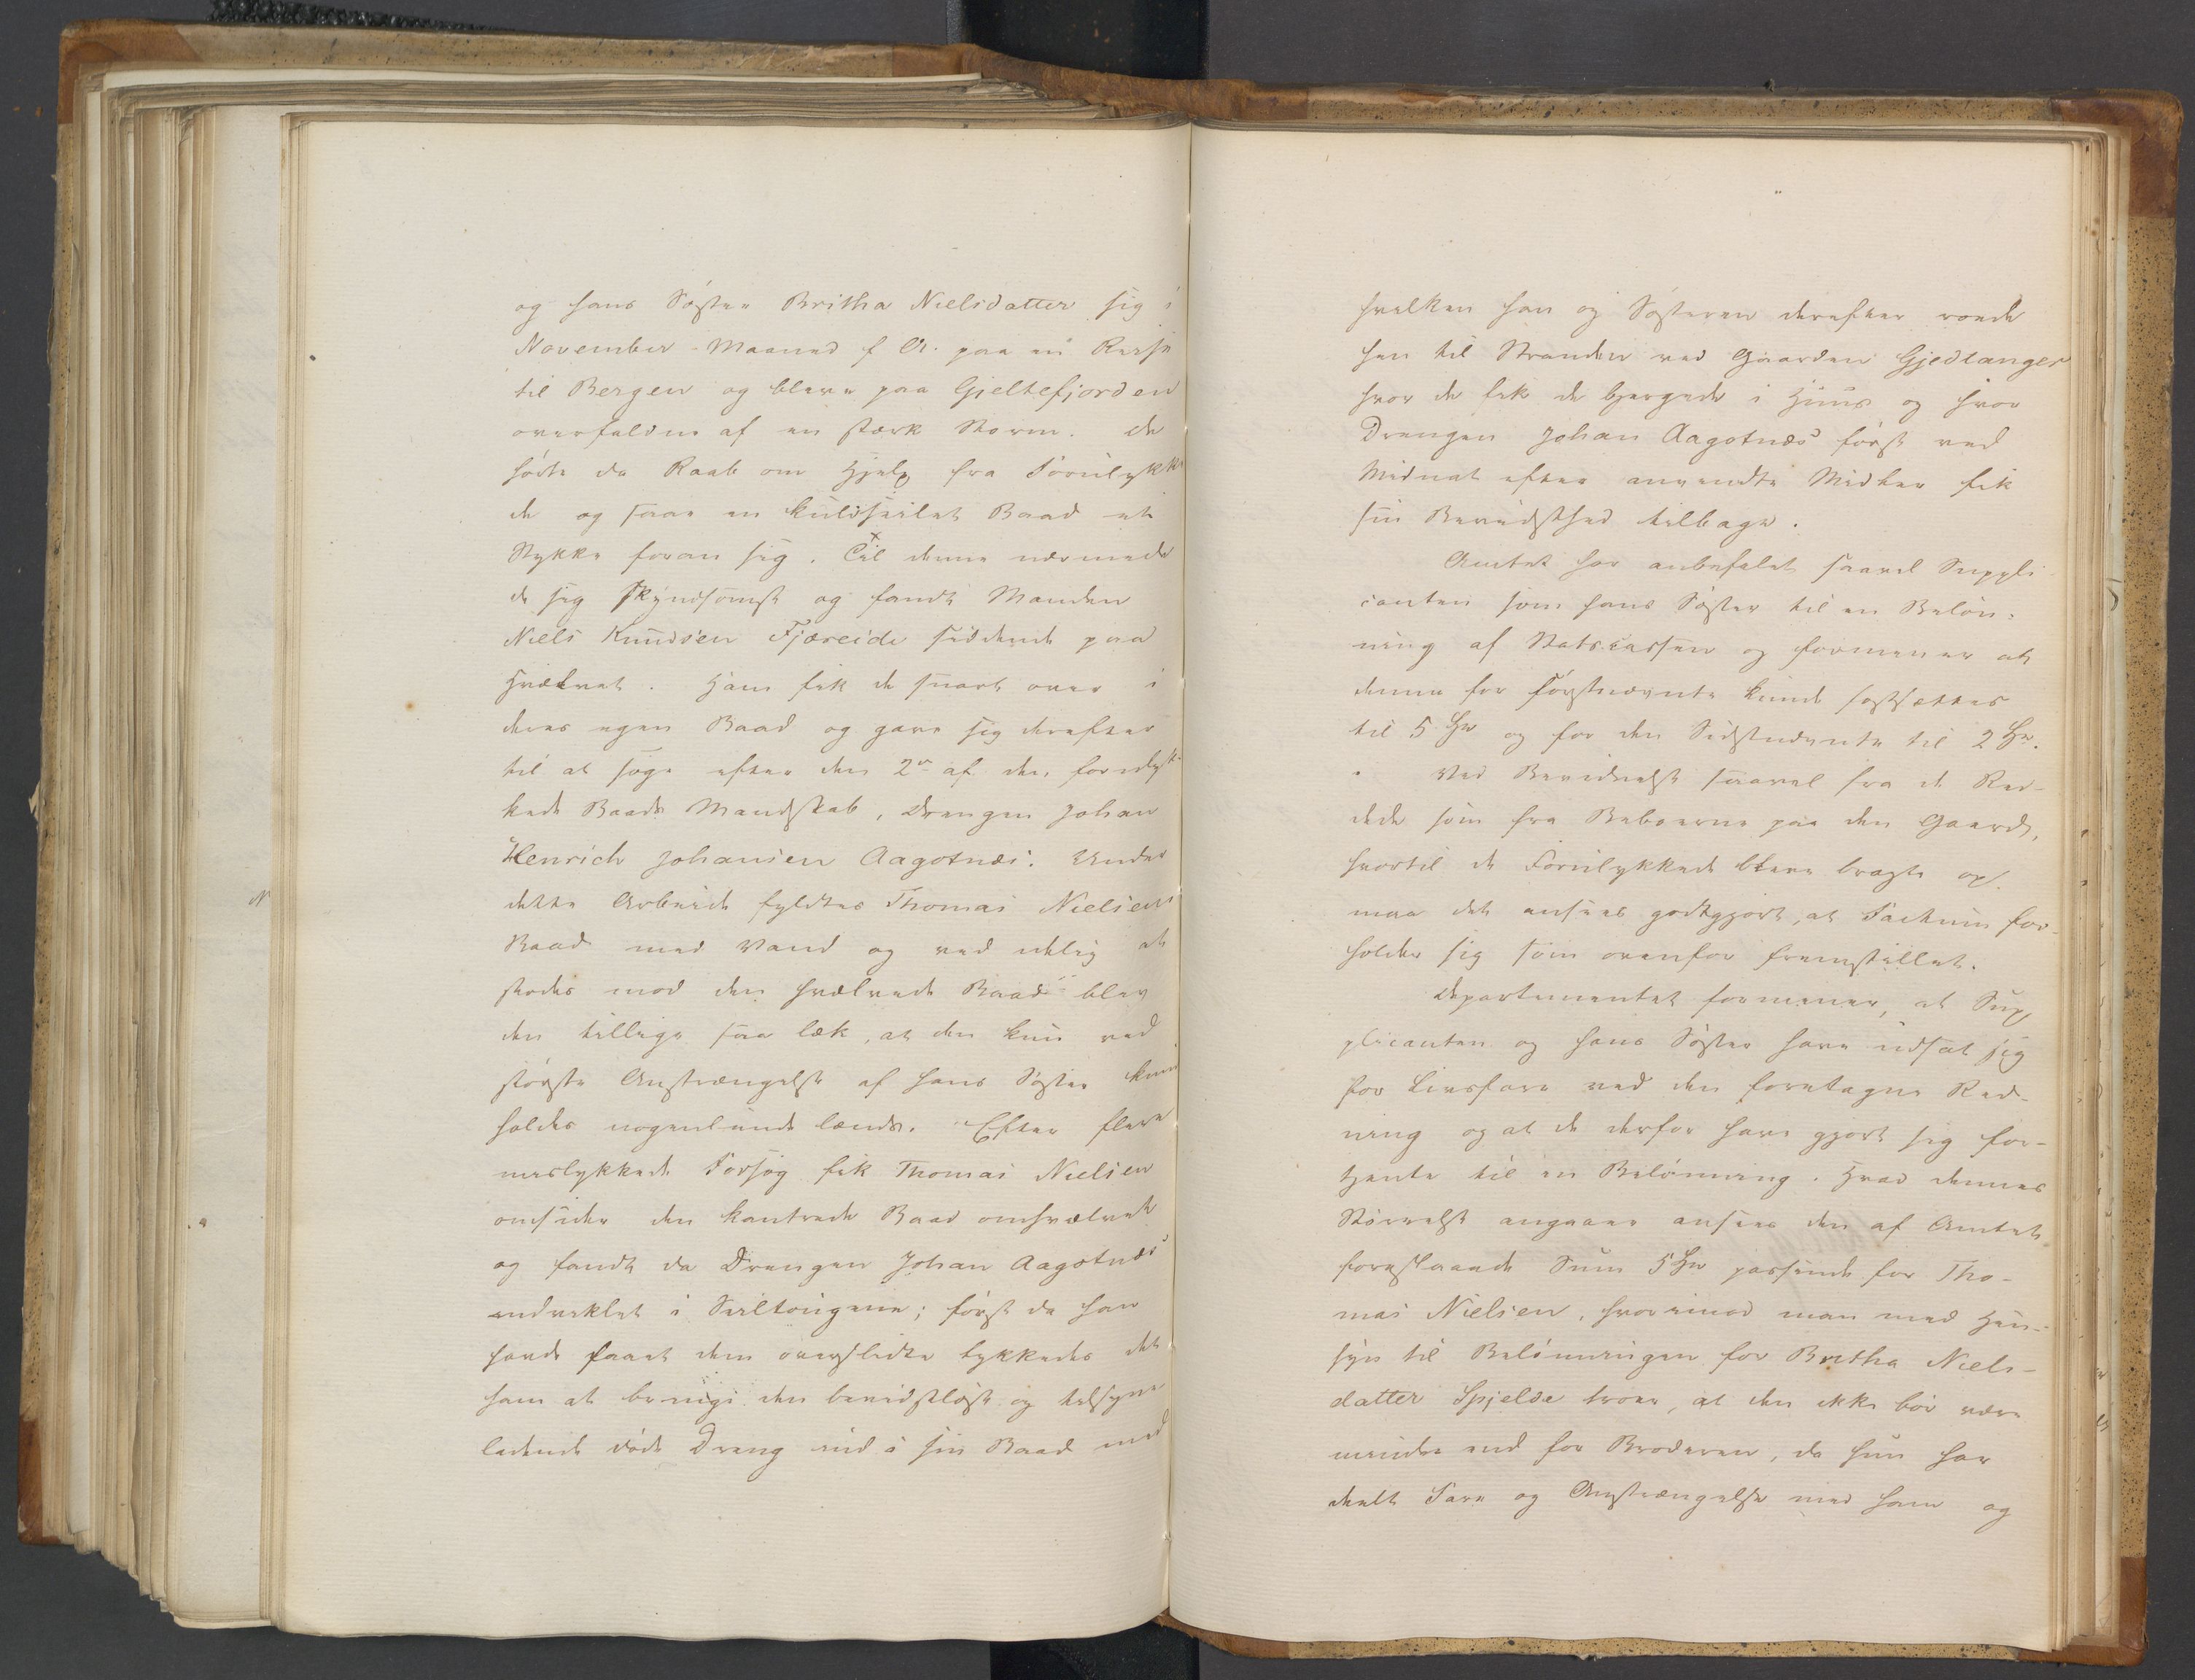 og hans Søster Britha Nielsdatter sig i
November-Maaned f. A. paa en Reise
til Bergen og bleve paa Gjeltefjorden
overfaldne af en stærk Storm. De
hørte da Raab om Hjelp fra Forulykke
de og saae en kuldseilet Baad et
Stykke foran sig. Til denne nærmede
de sig skyndsomst og fandt Manden
Niels Knudsen Fjæreide siddende paa
Hvælvet. Ham fik de snart over i
deres egen Baad og gave sig derefter
til at søge efter den 2den af den forulyk-
kede Baads Mandskab, Drengen Johan
Henrich Johansen Aagotnæs. Under
dette Arbeide fyldtes Thomas Nielsens
Baad med Vand og ved idelig at
stødes mod den hvælvede Baad blev
den tillige saa læk, at den kun ved
største Anstrængelse af hans Søster kunde
holdes nogenlunde lænds. Efter flere
mislykkede Forsøg fik Thomas Nielsen
omsider den kantrede Baad omhvælvet
og fandt da Drengen Johan Aagotnæs
indviklet i Seiltougene; først da han
havde faaet dem overslidte lykkedes det
ham at bringe den bevidstløse og tilsyne
ladende døde Dreng ind i sin Baad med
hvilken han og Søsteren derefter roede
hen til Stranden ved Gaarden Gjedtanger
hvor de fik de bjergede i Huus og hvor
Drengen Johan Aagotnæs først ved
Midnat efter anvendte Midler fik
sin Bevidsthed tilbage.
Amtet har anbefalet saavel Suppli-
canten som hans Søster til en Beløn-
ning af Statscassen og formener at
denne for førstnævnte kunde fastsættes
til 5 Spd og for den Sidstnævnte til 2 Spd.
Ved Bevidnelse saavel fra de Red-
dede som fra Beboerne paa den Gaard,
hvortil de Forulykkede bleve bragte op,
maa det ansees godtgjort, at Factum for-
holder sig som ovenfor fremstillet.
Departementet formener, at Sup
plicanten og hans Søster have udsat sig
for Livsfare ved den foretagne Red-
ning og at de derfor have gjort sig for-
tjente til en Belønning. Hvad dennes
Størrelse angaaer ansees den af Amtet
foreslaaede Sum 5 Spd passende for Tho-
mas Nielsen, hvorimod man med Hen-
syn til Belønningen for Britha Niels-
datter Spjelde troer, at den ikke bør være
mindre end for Broderen, da hun har
deelt Fare og Anstrængelse med ham og